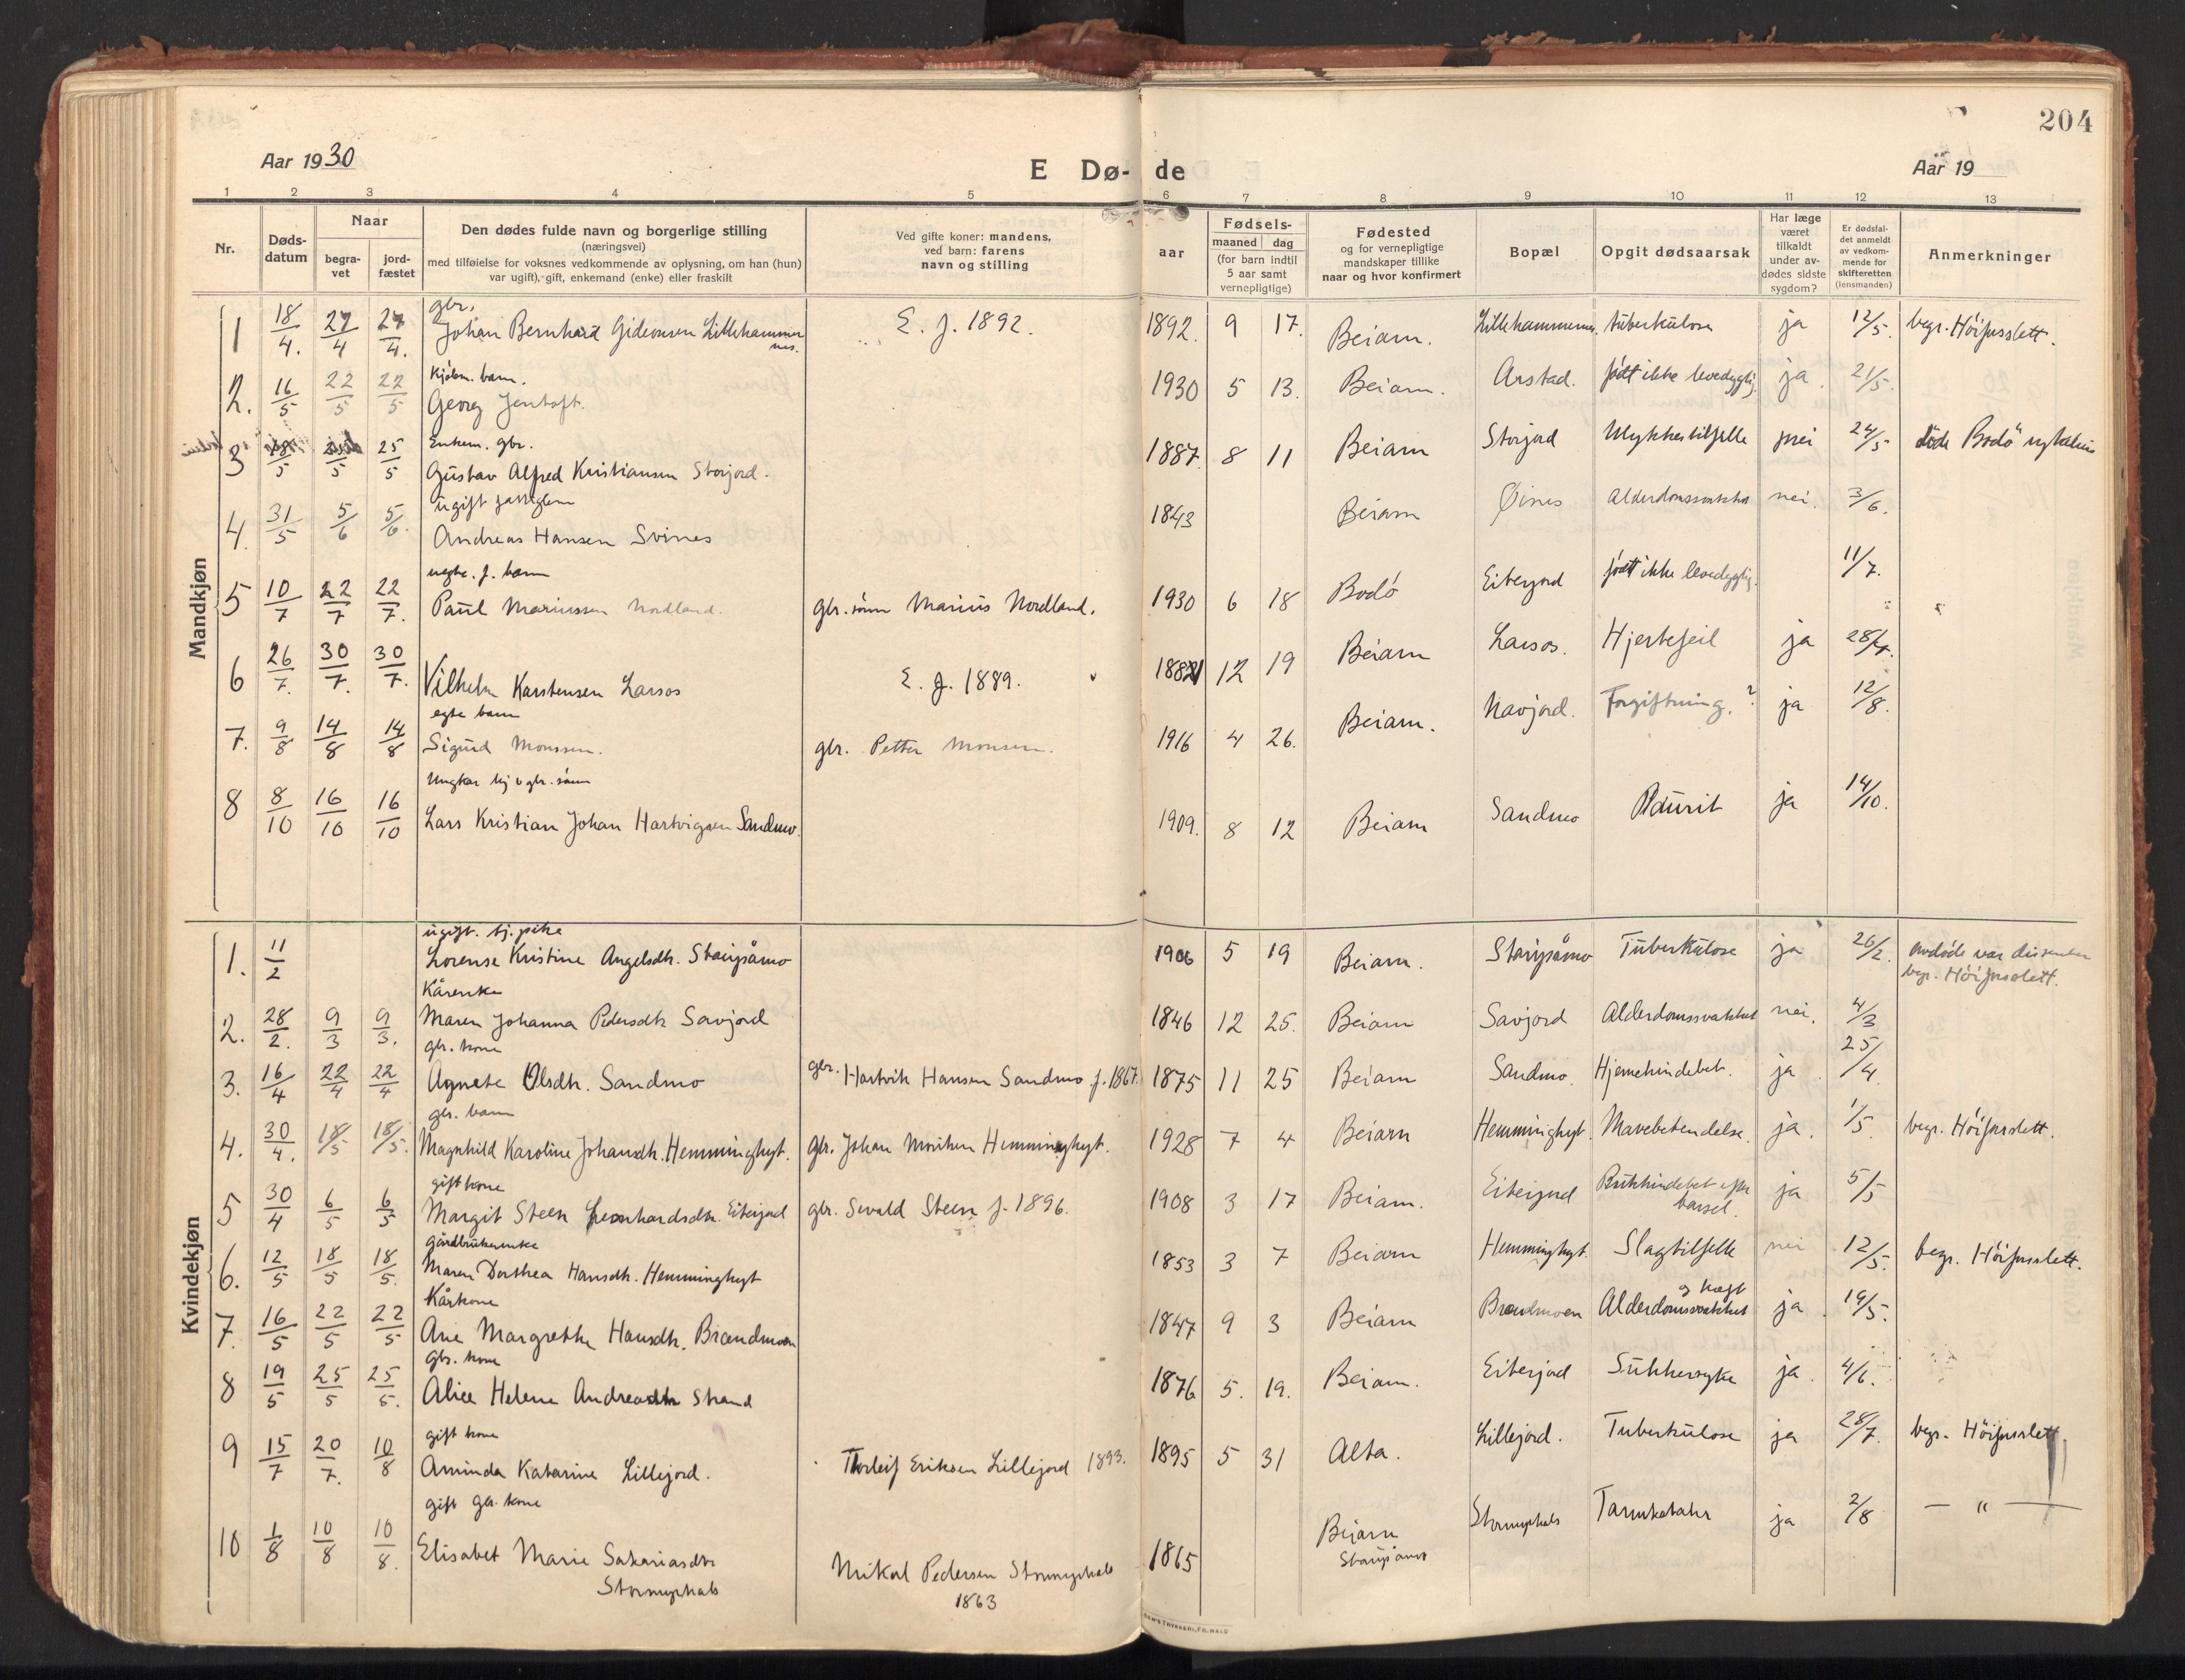 204
Aar 1930
E Dø- de
Aar 19
1 2 3 4 5 6 7 8 9 10 11 12 13
Nr.
Døds-
datum
Naar
begra-
vet
jord-
fæstet
Den dødes fulde navn og borgerlige stilling
(næringsvei)
med tilføielse for voksnes vedkommende av oplysning, om han (hun)
var ugift, gift, enkemand (enke) eller fraskilt
Ved gifte koner: mandens,
ved barn: farens
navn og stilling
aar
Fødsels-
maaned dag
(for barn indtil
5 aar samt
vernepligtige)
Fødested
og for vernepligtige
mandskaper tillike
naar og hvor konfirmert
Bopæl
Opgit dødsaarsak
Har læge
været
tilkaldt
under av-
dødes sidste
sygdom?
Er dødsfal-
det anmeldt
av vedkom-
mende for
skifteretten
(lensmanden)
Anmerkninger
Mandkjøn
gbr.
1 18/4. 27/4 27/4. Johan Bernhard Gideonsen Lillehammer
nes.
E. f. 1892. 1892. 9 17. Beiarn. Lillehammernes tuberkulose ja 12/5. begr. Höifusslett.
Kjöbm. barn.
2. 16/5 22/5 22/5 Georg Jentoft. 1930 5 13. Beiarn. Arstad. født ikke levedygtig ja. 21/5.
Enkem. gbr.
3 18/5 25/5 25/5 Gustav Alfred Kristiansen Storjord. 1887. 8 11 Beiarn Storjord Ulykkestilfelle nei 24/5 døde Bodö
ugift fattiglem
4. 31/5 5/6 5/6. Andreas Hansen Svines 1843 Beiarn Øines Alderdomssvakhet nei. 3/6.
uegte. f. barn
5 10/7 22/7 22/7. Paul Mariussen Nordland. gbr. sønn Marius Nordland. 1930 6 18 Bodö Eiterjord født ikke levedygtig. 11/7.
6 26/7. 30/7. 30/7. Vilhelm Karstensen Larsos E. f. 1889. 12 19 Beiarn Larsos. Hjertefeil ja 28/7.
egte barn
7. 9/8 14/8 14/8 Sigurd Monssen. gbr. Petter Monsen. 1916 4 26. Beiarn. Navjord. Forgiftning.? ja 12/8.
Ungkar lej v gbr. sønn
8 8/10 16/10 16/10 Lars Kristian Johan Hartvigsen Sandmo. 1909. 8 12 Beiarn Sandmo Pldurit ja 14/10.
Kvindekjøn
ugift. tj. pike
1. 11/2 Lorense Kristine Angelsdtr. Staupåmo 1906 5 19 Beiarn. Staupåmo Tuberkulose ja 26/2. Avdøde var dissenter
begr. Höifusslett.
Kårenke
2. 28/2. 9/3 9/3. Maren Johanna Pedersdtr Savjord 1846 12 25. Beiarn Savjord Alderdomssvakhet nei. 4/3
gbr. kone
3. 16/4 22/4 22/4 Agnete Olsdtr. Sandmo gbr. Hartvik Hansen Sandmo f. 1867. 1875 11 25 Beiarn Sandmo. Hjernehindebet. ja. 25/4.
gbr. barn
4. 30/4. 18/5 18/5. Magnhild Karoline Johansdtr. Hemminghyt. gbr. Johan Moritsen Hemminghyt. 1928 7 4 Beiarn Hemminghyt. Mavebetendelse. ja. 1/5. begr. Höifusslett.
gift kone
5 30/4 6/5 6/5 Margit Steen Leonhardsdtr. Eiterjord gbr. Sevald Steen f. 1896. 1908 3 17 Beiarn. Eiterjord Bukhindebet efter
barsel. ja 5/5
gårdbrukerenke
6. 12/5 18/5 18/5. Maren Dorthea Hansdtr. Hemminghyt 1853 3 7 Beiarn Hemminghyt. Slagtilfelle nei 12/5. begr. Höifusslett.
Kårkone
7. 16/5 22/5 22/5 Ane Margrethe Hansdtr. Brændmoen 1847 9 3 Beiarn Brændmoen Alderdomssvakhet og kræft ja. 19/5.
gbr. kone
8 19/5 25/5 25/5. Alice Helene Andreasdtr Strand 1876 5. 19. Beiarn. Eiterjord Sukkersyke ja. 4/6.
gift kone
9 15/7 20/7. 10/8 Aminda Katarine Lillejord. Thorleif Eriksen Lillejord 1893. 1895 5 31 Alta. Lillejord. Tuberkulose ja 28/7. begr. Höifusslett
gift gbr. kone
10 1/8 10/8 10/8. Elisabet Marie Sakariasdtr
Stormyrhals
Mikal Pedersen Stormyrhals
1863
1865 Beiarn
Staupåmo
Stormyrhals Tarmkatahr ja 2/8 — " —